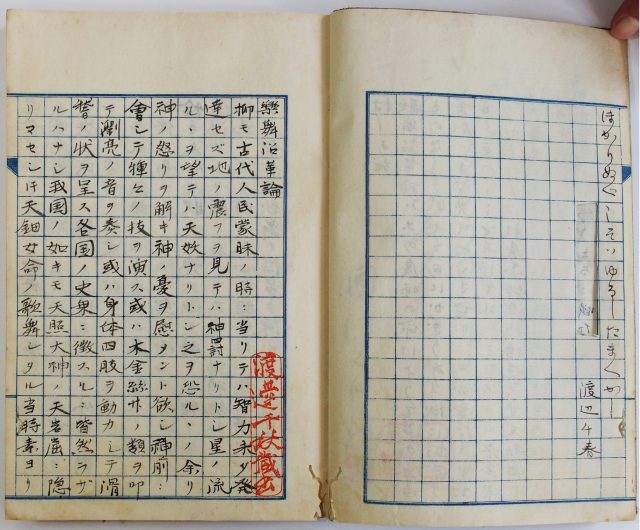 はかりぬ心しそいゆるしたまへかし
渡辺千春
樂舞沿革論
抑モ古代人民蒙昧ノ時ニ当リテハ智力未タ発
達セズ地ノ震フヲ見テハ神罰ナリトシ星ノ流
ルヽヲ望テハ天妖ナリトシ之ヲ恐ルヽノ余リ
神ノ怒リヲ解キ神ノ憂ヲ慰メント欲シ神前ニ
會シテ種々ノ技ヲ演ス或ハ木金絲竹ノ類ヲ叩
テ瀏亮ノ音ヲ奏シ或ハ身体四肢ヲ動カシテ滑
稽ノ状ヲ呈ス各国ノ史乗ニ徴スルニ皆然ラザ
ルハナシ我国ノ如キモ天照大神ノ天岩窟ニ隠
リマセシ時天鈿女命ノ歌舞シタル当時素ヨリ
渡邊千秋蔵書